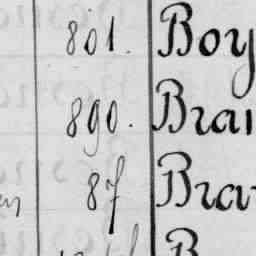 801. Boy
890. Brai
87 Bra
B